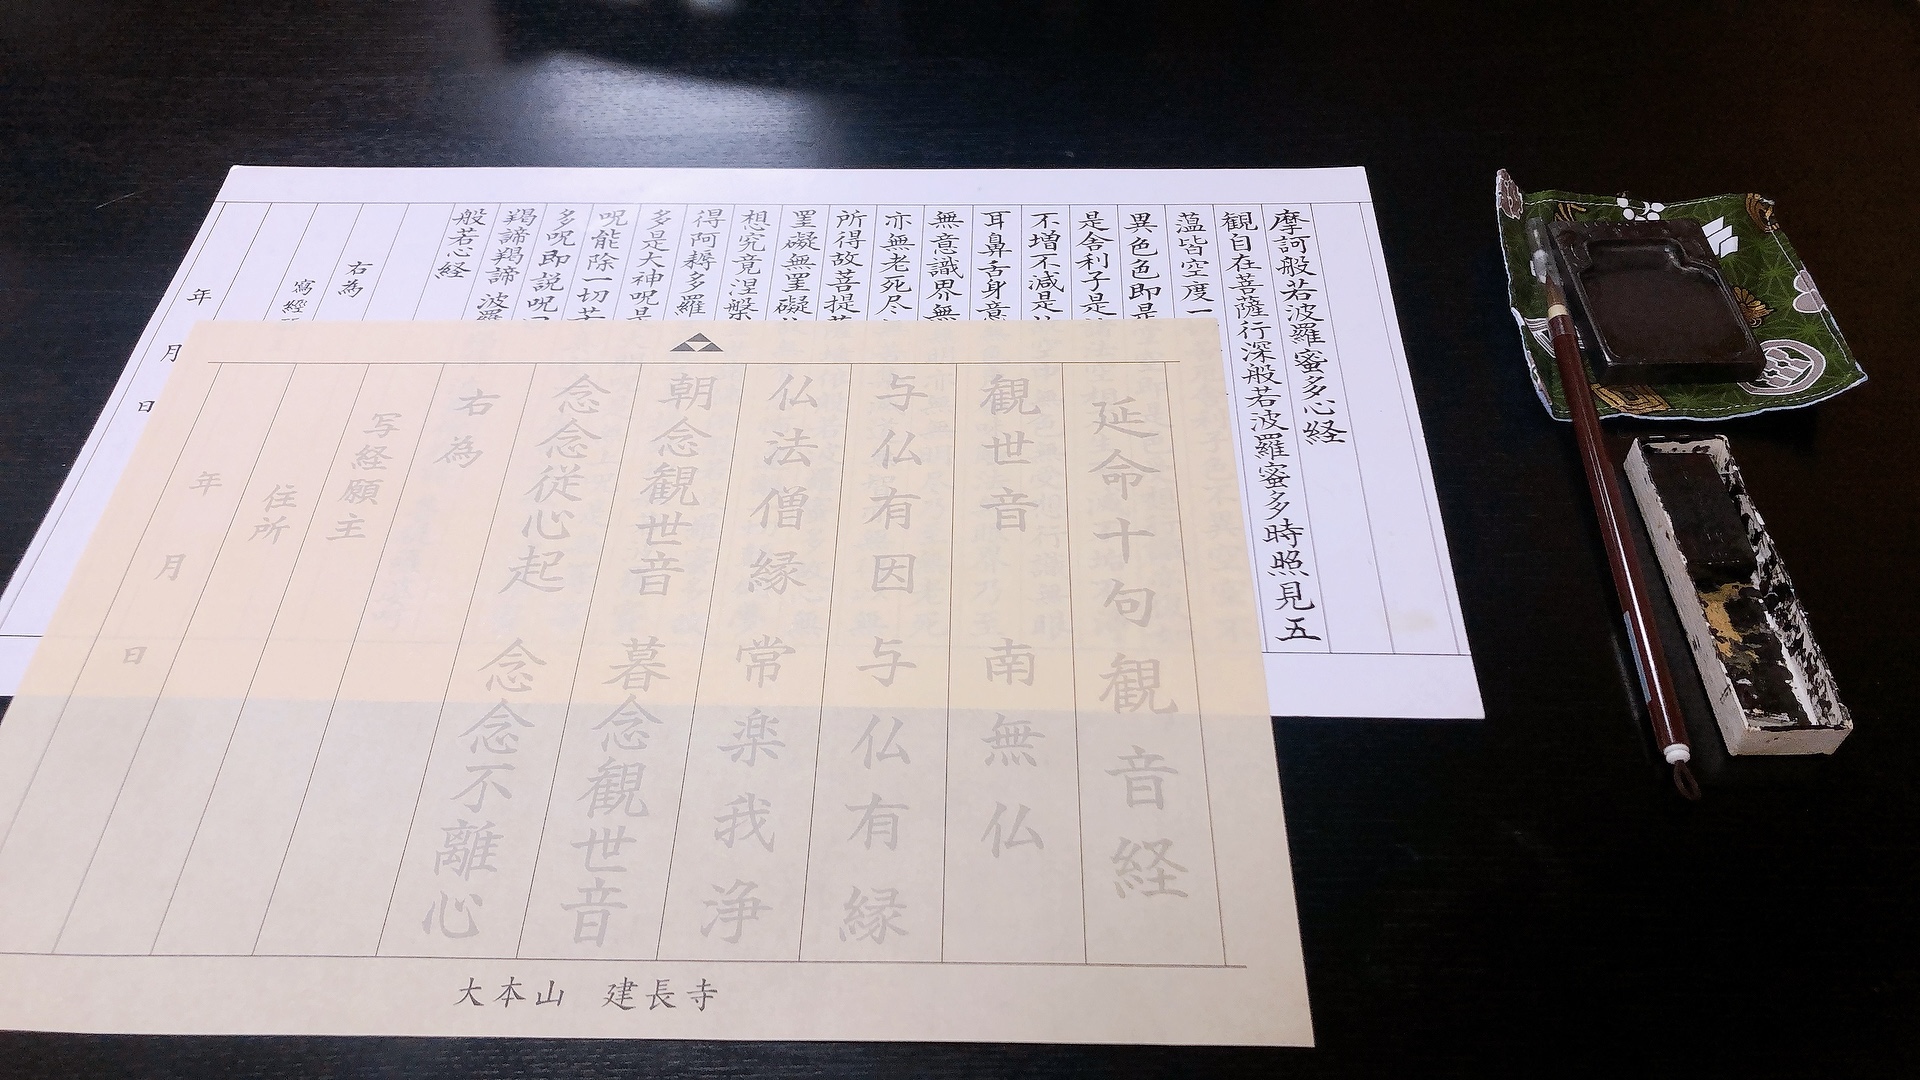 摩訶般若波羅蜜多心経
観自在菩薩行深般若波羅蜜多時照見五
薀皆空度一
異色色即是
是舎利子是
不増不減是
耳鼻舌身意
無意識界無
亦無老死尽
所得故菩提
罣礙無罣礙
想究竟涅槃
得阿耨多羅
多是大神呪是
呪能除一切苦
多呪即説呪
羯諦羯諦 波羅
般若心経
右為
寫経
年 月 日
延命十句観音経
観世音 南無仏
与仏有因 与仏有縁
仏法僧縁 常楽我浄
朝念観世音 暮念観世音
念念従心起 念念不離心
右為
写経願主
住所
年 月 日
大本山 建長寺